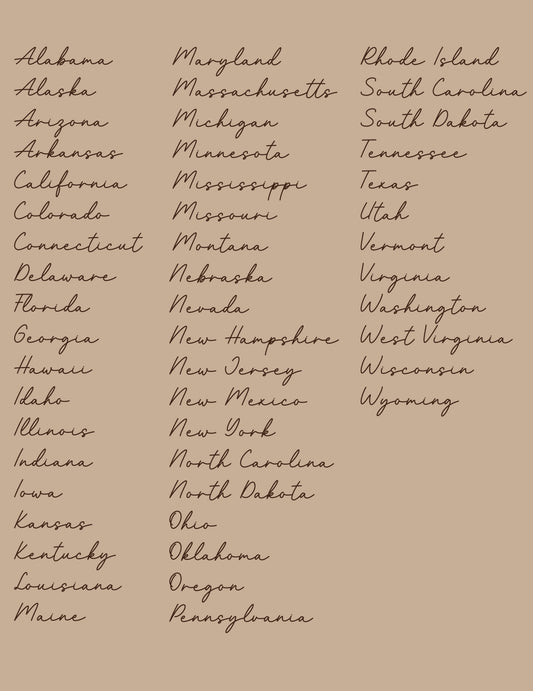 Alabama
Alaska
Arizona
Arkansas
California
Colorado
Connecticut
Delaware
Florida
Georgia
Hawaii
Idaho
Illinois
Indiana
Iowa
Kansas
Kentucky
Louisiana
Maine
Maryland
Massachusetts
Michigan
Minnesota
Mississippi
Missouri
Montana
Nebraska
Nevada
New Hampshire
New Jersey
New Mexico
New York
North Carolina
North Dakota
Ohio
Oklahoma
Oregon
Pennsylvania
Rhode Island
South Carolina
South Dakota
Tennessee
Texas
Utah
Vermont
Virginia
Washington
West Virginia
Wisconsin
Wyoming